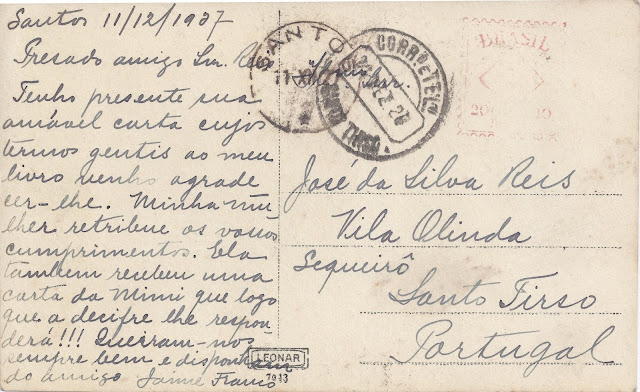 Santos 11/12/1937
Presado amigo Snr. Reis
Tenho presente sua
amável carta cujos
termos gentis ao meu
livro venho agrade
cer-lhe. Minha mu
lher retribue os vossos
cumprimentos. Ela
tambem recebeu uma
carta da Mimi que logo
que a decifre lhe respon
derá!!! Queiram-nos
sempre bem e disponham
do amigo Jaime Franco
SANTOS
CORREIO
BRASIL
José da Silva Reis
Vila Olinda
Sequeirô
Santo Tirso
Portugal
LEONAR
7933